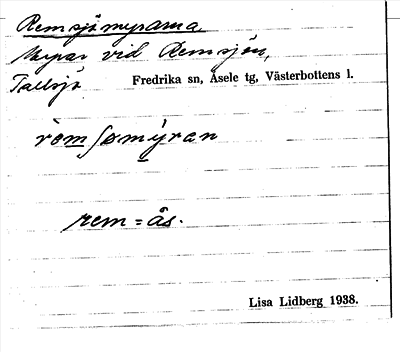 Remsjömyrarna.
Myrar vid Remsjön,
Tallsjö. Fredrika sn, Åsele tg, Västerbottens l.
rèmʃømýran
rem = ås.
Lisa Lidberg 1938.